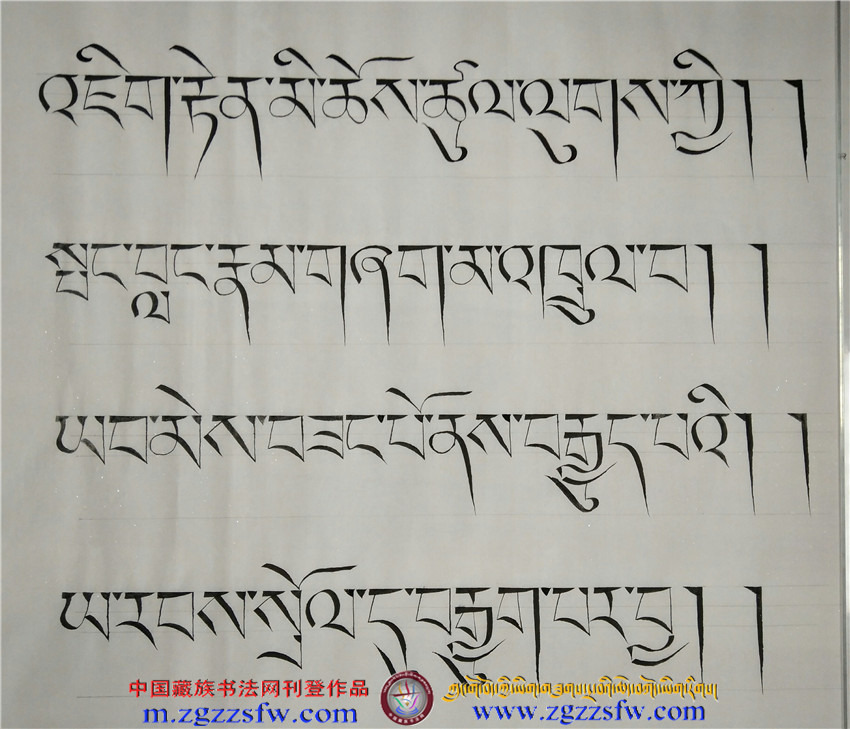 འཇིག་རྟེན་མི་ཆོས་ཚུལ་ལུགས་ཀྱི། །
སྤང་བླང་རྣམ་གཞག་མ་འཁྲུལ་བ། །
ཡབ་མེས་བཟང་པོ་ནས་བརྒྱུད་པའི། །
ཡ་རབས་སྲོལ་དུ་བརྒྱུག་པར་བྱ། །
中国藏族书法网刊登作品
m.zgzzsfw.com
www.zgzzsfw.com